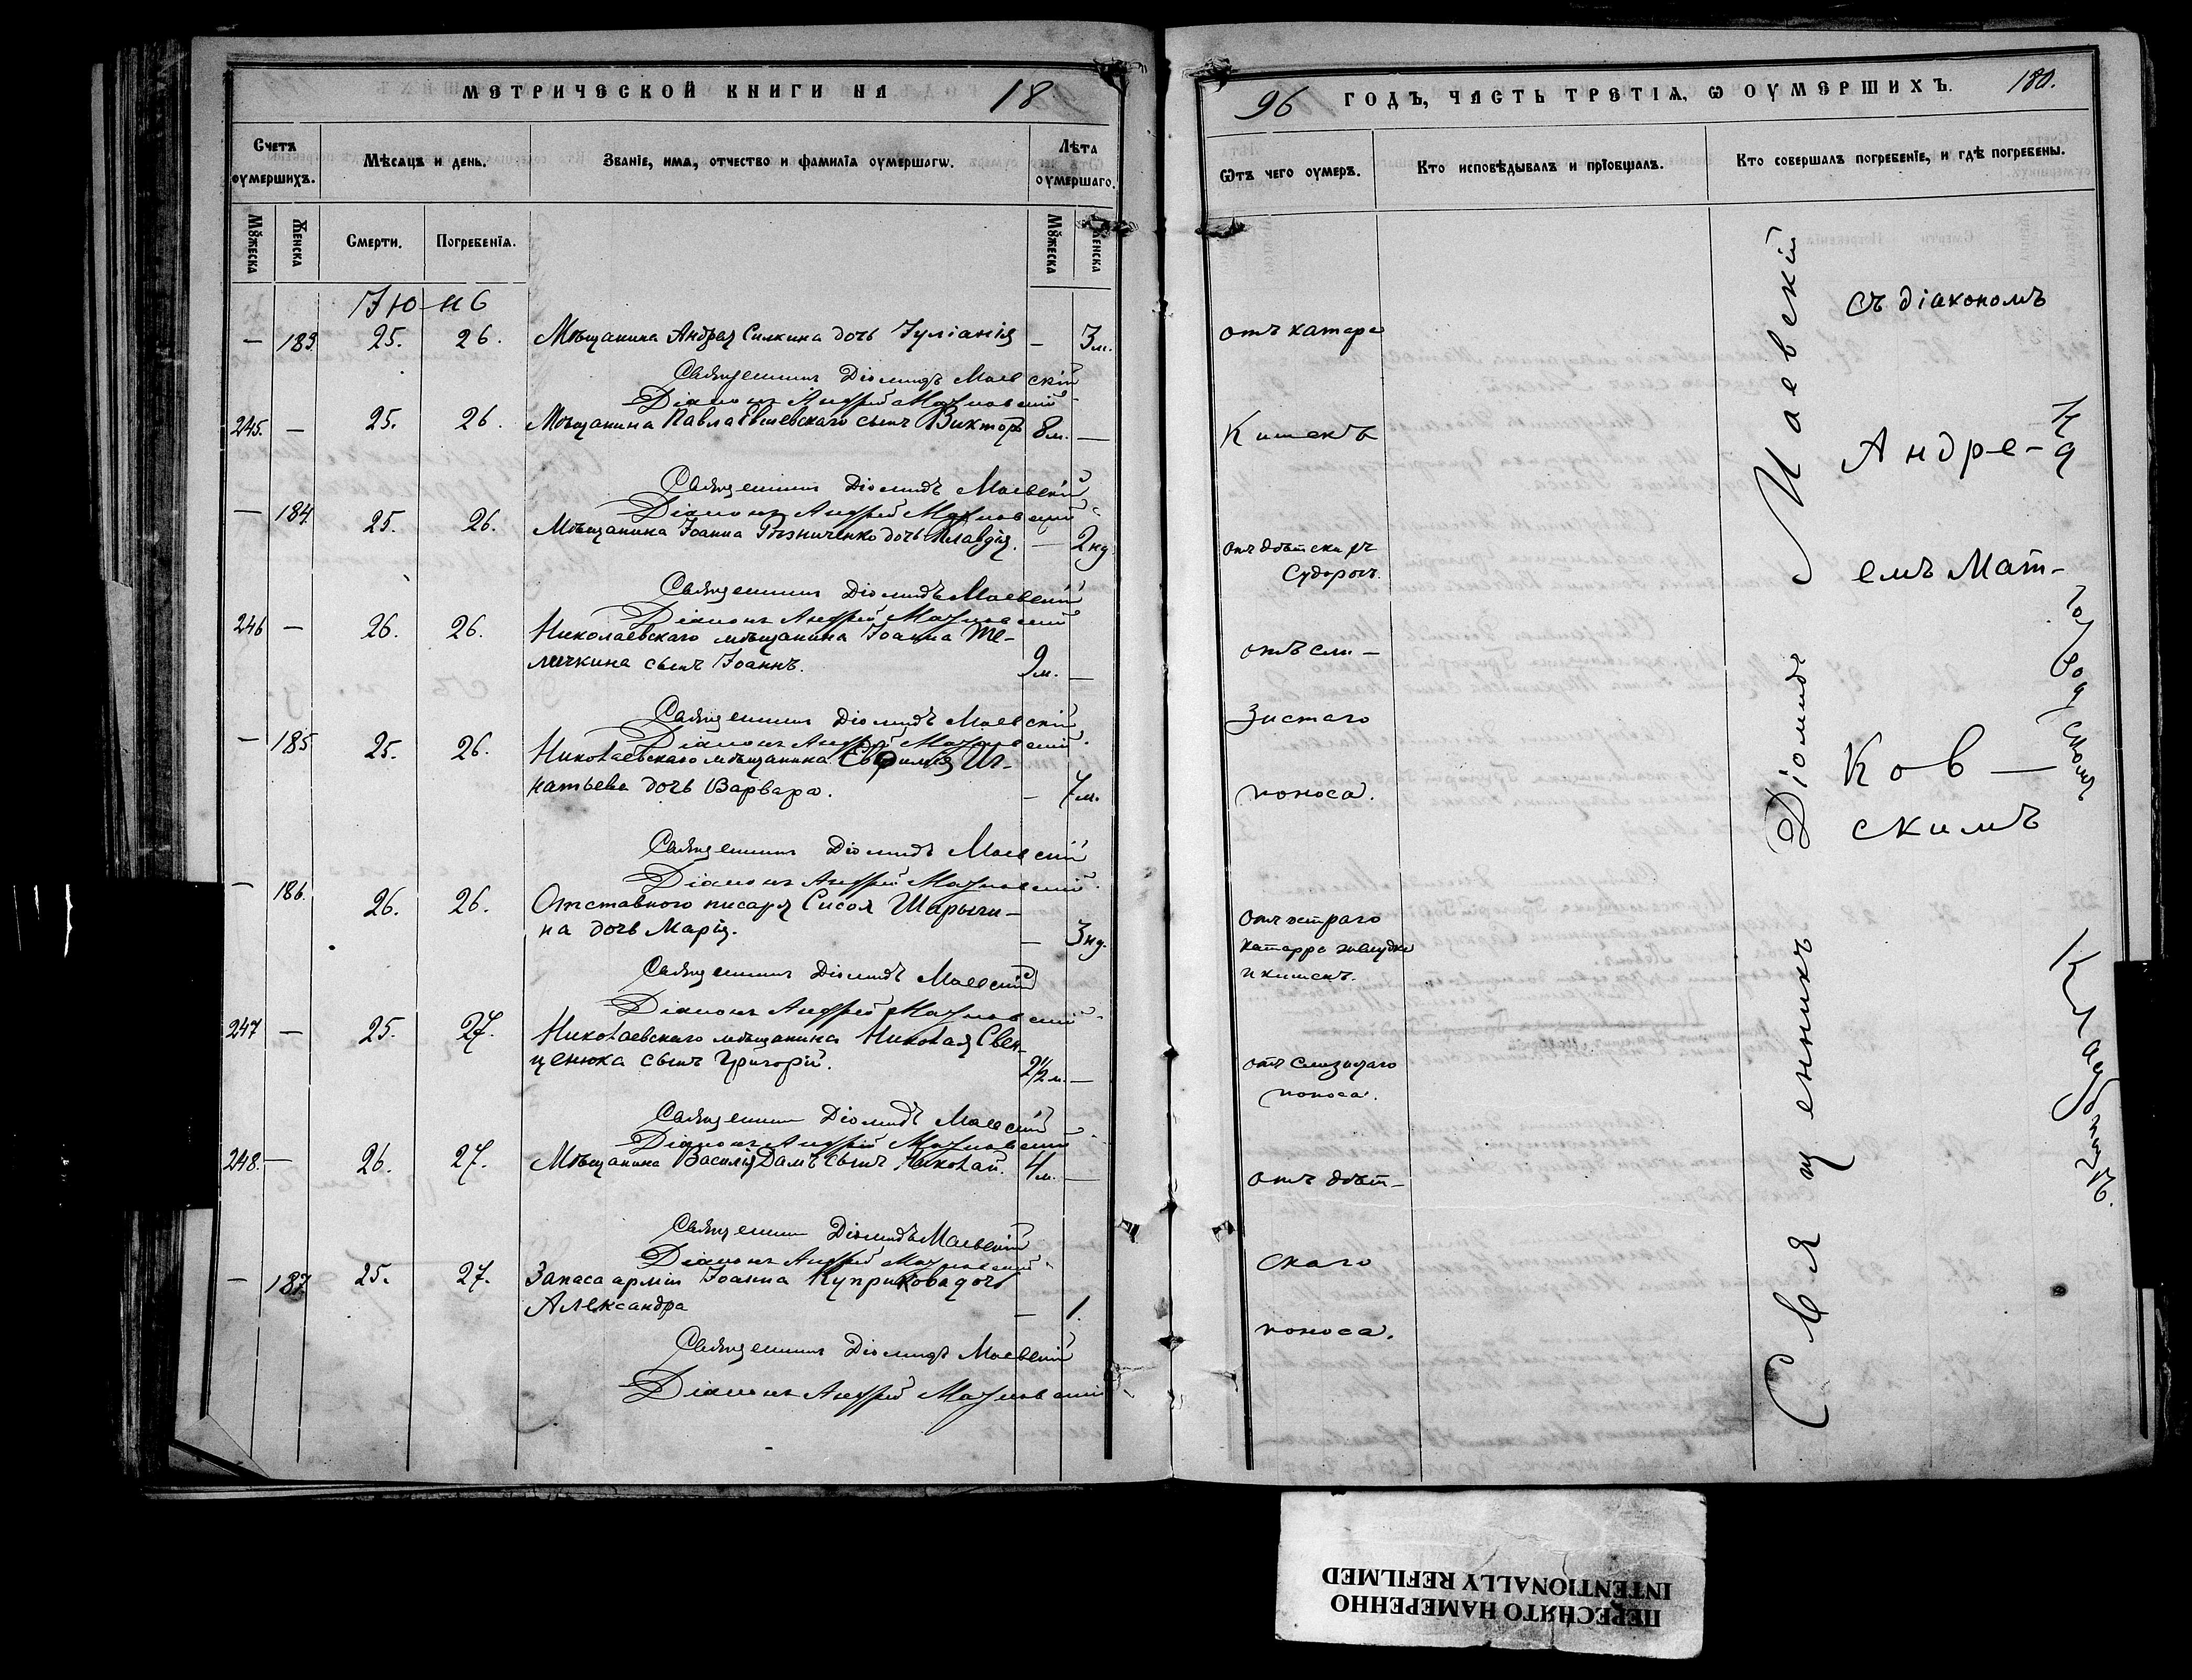 МЕТРИЧЕСКОЙ КНИГИ НА 18
Счетъ оумершихъ.
Мѣсяцъ и день.
Званіе, имя, отчество и фамилія оумершагω.
Лѣта оумершаго.
Мꙋжеска
Женска
Смерти.
Погребенія.
Мꙋжеска
Женска
Іюнь
— 183. 25. 26. Мѣщанина Андрея Силкина дочь Іуліанія — 3 м.
Священникъ Діомидъ Маевскій
Діаконъ Андрей
245. — 25. 26. Мѣщанина Павла сынъ Викторъ 8 м. —
Священникъ Діомидъ Маевскій
Діаконъ Андрей
— 184. 25. 26. Мѣщанина Іоанна Рѣзниченко дочь Клавдія. — 2 нд
Священникъ Діомидъ Маевскій
Діаконъ Андрей
246 — 26. 26. Николаевскаго мѣщанина Іоанна Те-
личкина сынъ Іоаннъ. 9 м. —
Священникъ Діомидъ Маевскій
Діаконъ Андрей
— 185 25. 26. Николаевскаго мѣщанина Евфимія Иг-
натьева дочь Варвара. — 7 м.
Священникъ Діомидъ Маевскій
Діаконъ Андрей
— 186. 26. 26. Отставного писаря Сисоя Шарыги-
на дочь Марія. — 3 нд.
Священникъ Діомидъ Маевскій
Діаконъ Андрей
247 — 25. 27. Николаевскаго мѣщанина Николая Свен-
ценюка сынъ Григорій. 2½ м. —
Священникъ Діомидъ Маевскій
Діаконъ Андрей
248. — 26. 27. Мѣщанина Василія Дамъ сынъ Николай. 4 м. —
Священникъ Діомидъ Маевскій
Діаконъ Андрей
— 187. 25. 27. Запаса арміи Іоанна Куприкова дочь
Александра — 1.
Священникъ Діомидъ Маевскій
Діаконъ Андрей
96 ГОДЪ, ЧАСТЬ ТРЕТІЯ, Ѡ ОУМЕРШИХЪ. 180.
Ѿтъ чего оумеръ.
Кто исповѣдывалъ и пріобщалъ.
Кто совершалъ погребеніе, и гдѣ погребены.
отъ катара
Кишекъ
отъ дѣтскихъ
Судорогъ.
отъ сли-
зистаго
поноса.
отъ остраго
катарра желудка
и кишекъ.
отъ слизистаго
поноса.
отъ дѣт-
скаго
поноса.
Священникъ Діомидъ Маевскій
съ діакономъ
Андре-
емъ Мат-
ков-
скимъ
На
Городскомъ
Кладбищѣ.
ПЕРЕСНЯТО НАМЕРЕННО
INTENTIONALLY REFILMED